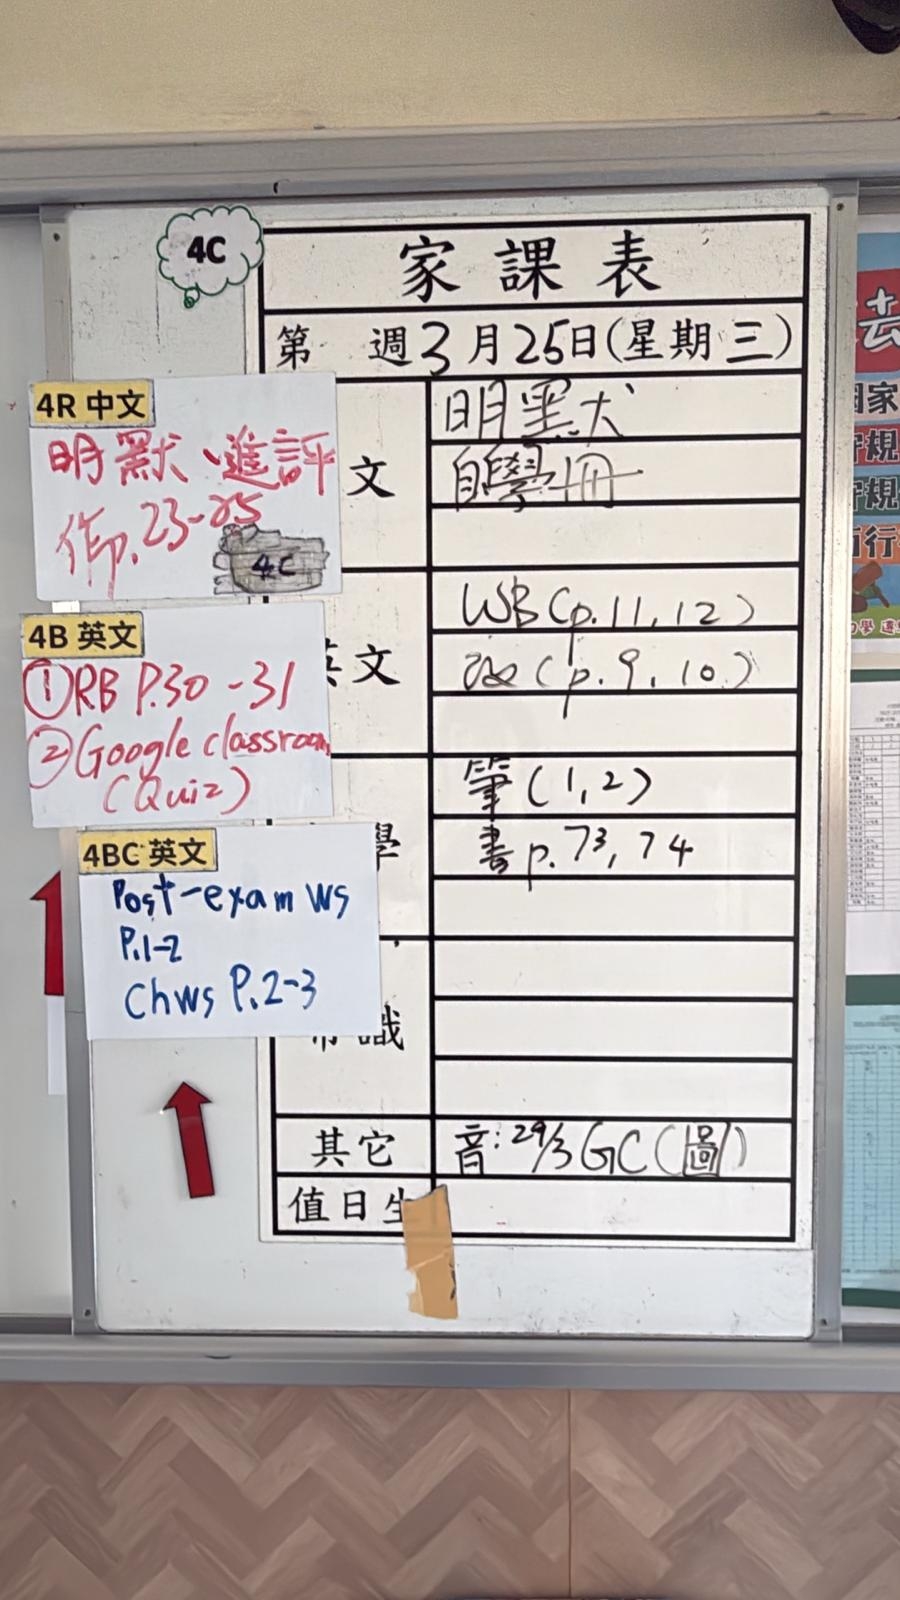 4C
家課表
第 週3月25日(星期三)
4R 中文
明默、進評
作p.23-25
4C
文
明默
自學冊
4B 英文
①RB P.30-31
②Google classroom
(Quiz)
英文
WB(p.11,12)
(p.9,10)
4BC 英文
Post-exam WS
P.1-2
Chws P.2-3
學
筆(1,2)
書p.73,74
常識
其它
音:29/3 GC(圖)
值日生